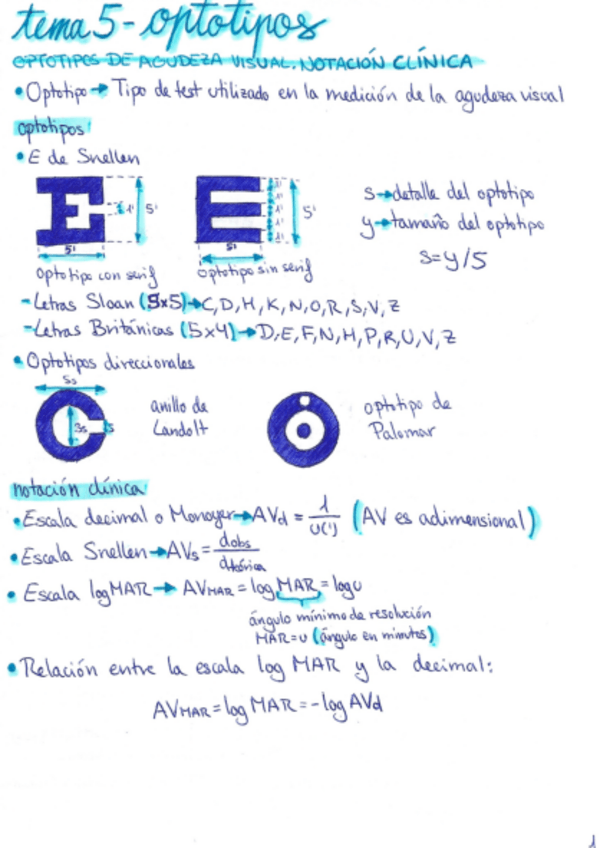 tema 5- optotipos
OPTOTIPOS DE AGUDEZA VISUAL. NOTACIÓN CLÍNICA
• Optotipo → Tipo de test utilizado en la medición de la agudeza visual
optotipos
• E de Snellen
1' 5' 5'
1' 1' 1' 1' 1' 5' 5'
s→detalle del optotipo
y→tamaño del optotipo
s=y/5
optotipo con serif
optotipo sin serif
-Letras Sloan (5x5)→C,D,H,K,N,O,R,S,V,Z
-Letras Británicas (5x4)→D,E,F,N,H,P,R,U,V,Z
• Optotipos direccionales
5s
3s s
anillo de
Landolt
optotipo de
Palomar
notación clínica
• Escala decimal o Monoyer→AVd = 1/u(') (AV es adimensional)
• Escala Snellen→AVs = dobs/dteórica
• Escala logMAR→ AVMAR = log MAR = logu
ángulo mínimo de resolución
MAR=u (ángulo en minutos)
• Relación entre la escala log MAR y la decimal:
AVMAR = log MAR = -log AVd
1